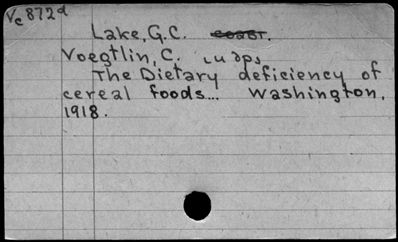 Vc872d
Lake, G.C.
Voegtlin, C.
The Dietary deficiency of
cereal foods... Washington,
1918.